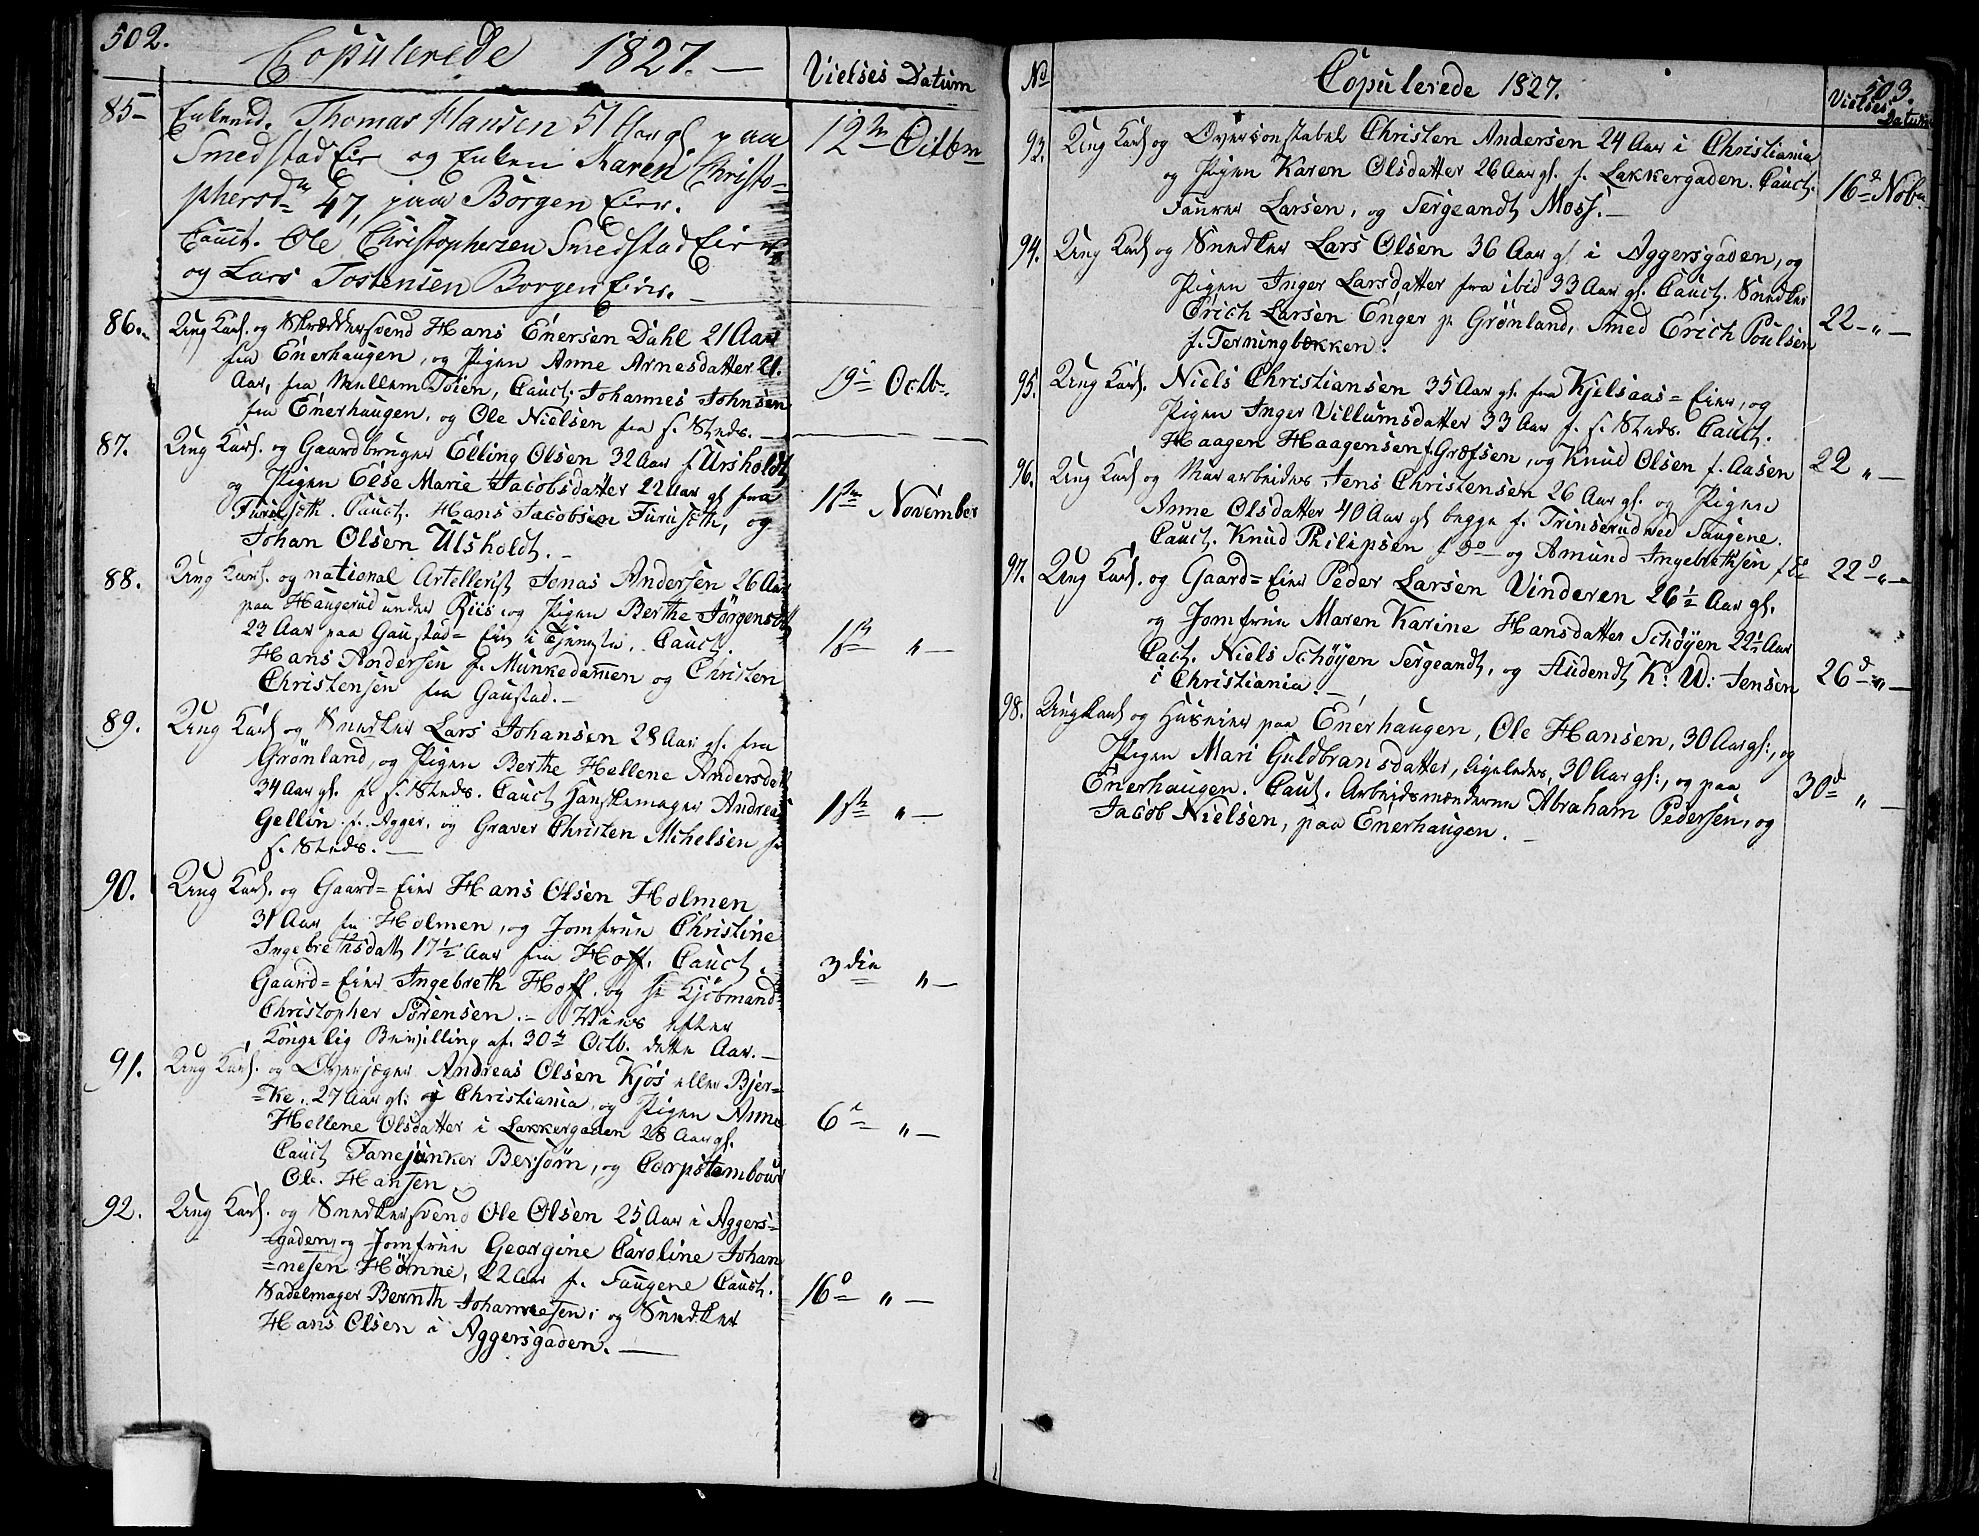 502.
Copulerede 1827. —
Vielses Datum
85 Enkemd. Thomas Hansen 51 Aar gl. paa
Smedstad Eie og Enken Karen Christo-
phersd. 47, paa Borgen Eier.
Cauct. Ole Christophersen Smedstad Eier
og Lars Tostensen Borgen Eier. —
12te Octbr
86. Ung Karl. og Skræddersvend Hans Enersen Dahl 21 Aar
fra Enerhaugen, og Pigen Anne Arnesdatter 21.
Aar, fra Mellem Töien, Cauct. Johannes Johnsen
fra Enerhaugen, og Ole Nielsen fra s. Steds. —
19de Octb.
87. Ung Karl. og Gaardbruger Elling Olsen 32 Aar f. Ulsholdt
og Pigen Else Marie Jacobsdatter 22 Aar gl. fra
Furuseth. Cauct. Hans Jacobsen Furuseth, og
Johan Olsen Ulsholdt. —
1ste November
88. Ung Karl. og national Artellerist Jonas Andersen 26 Aar
paa Haugerud under Riis og Pigen Berthe Jörgensdtt
23 Aar paa Gaustad= Eie i Tjeneste. Cauct.
Hans Andersen f. Munkedamen og Christen
Christensen fra Gaustad. —
1ste " —
89. Ung Karl og Snedker Lars Johansen 28 Aar gl. fra
Grönland, og Pigen Berthe Hellene Andersdatt
34 Aar gl. f. s. Steds. Cauct Handskemager Andreas
Gellin f. Agger, og Graver Christen Mchelsen f.
s. Steds. —
1ste " —
90. Ung Karl. og Gaard= Eier Hans Olsen Holmen
31 Aar fra Holmen, og Jomfrue Christine
Ingebrethsdatt 17½ Aar fra Hoff. Cauct.
Gaard= Eier Ingebreth Hoff. og Hr Kjöbmand
Christopher Sörensen. — Viet efter
Kongelig Bevilling af. 30te Octb. dette Aar. —
3die " —
91. Ung Karl. og Overjæger Andreas Olsen Kjos eller Bjer-
=ke. 27 Aar gl: i Christiania, og Pigen Anne
Hellene Olsdatter i Lakkergaden 28 Aar gl.
Cauct Fanejunker Bersöm, og Corpstambour
Ole Hansen
6te " —
92. Ung Karl. og Snedkersvend Ole Olsen 25 Aar i Aggers-
=gaden, og Jomfrue Georgine Caroline Johan
=nesen Hönne, 22 Aar f. Saugene Cauct.
Sadelmager Bernth Johannesen, og Snedker
Hans Olsen i Aggersgaden. —
16d " —
503.
No
Copulerede 1827.
Vielses Datum
93. Ung Karl og Overconstabel Christen Andersen 24 Aar i Christiania
og Pigen Karen Olsdatter 26 Aar gl. f. Lakkergaden. Cauct.
Fanker Larsen, og Sergeandt Moss. —
16de Nobr
94. Ung Karl og Snedker Lars Olsen 36 Aar gl i Aggersgaden, og
Pigen Inger Larsdatter fra ibid 33 Aar gl. Cauct. Snedker
Erich Larsen Enger fr Grönland, Smed Erich Poulsen
f. Terningbækken.
22 - " —
95. Ung Karl. Niels Christiansen 35 Aar gl. fra Kjelsaas= Eier, og
Pigen Inger Villumsdatter 33 Aar f. s. Steds. Cauct.
Haagen Haagensen f. Græfsen, og Knud Olsen f. Aasen
22 " —
96. Ung Karl og Mararbeider Jens Christensen 26 Aar gl. og Pigen
Anne Olsdatter 40 Aar gl begge f. Trinserud ved Saugene.
Cauct. Knud Philipsen f. do og Amund Ingebrethsen f. do
22d " —
97. Ung Karl. og Gaard= Eier Peder Larsen Vinderen 26½ Aar gl.
og Jomfrue Maren Karine Hansdatter Schöyen 22½ Aar
Cact. Niels Schöyen Sergeandt, og Student K. W: Jensen
i Christiania. —
26d " —
98. Ung Karl og Huseier paa Enerhaugen, Ole Hansen, 30 Aar gl:, og
Pigen Mari Guldbransdatter, ligeledes, 30 Aar gl:, og paa
Enerhaugen. Caut. Arbeidsmændene Abraham Pedersen, og
Jacob Nielsen, paa Enerhaugen. —
30d " —